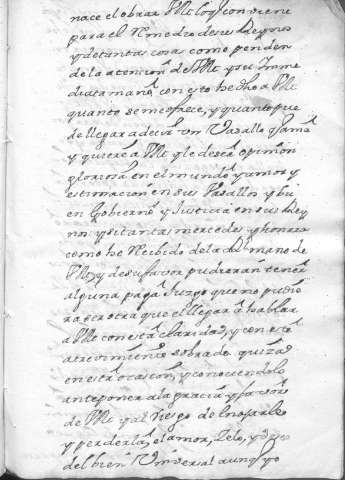 nace el obrar VMd lo q conviene
para el Remedio de sus Reynos
y de tantas cosas como penden
de la atencion de VMd y su Imme
diata mano, con esto he dho a VMd
quanto se me ofreze, y quanto pue
de llegar a decir un Vasallo q ama
y quiere a VMd q le desea opinion
gloriosa en el mundo y amor y
estimacion en sus Vasallos y bu
en Gobierno y Justicia en sus Rey
nos y si tantas mercedes y honrras
como he Recibido de la Rl mano de
VMd, y de su favor pudieran tener
alguna paga Juzgo que no pudie
ra ser otra que el llegar a hablar
a VMd con esta claridad, y con este
atrevimiento sobrado quizas
en esta ocasion, y conociendolo
anteponer a la gracia y favor
de VMd y al riesgo de
y perderla, el amor, Zelo, y deseo
del bien Universal aunq yo